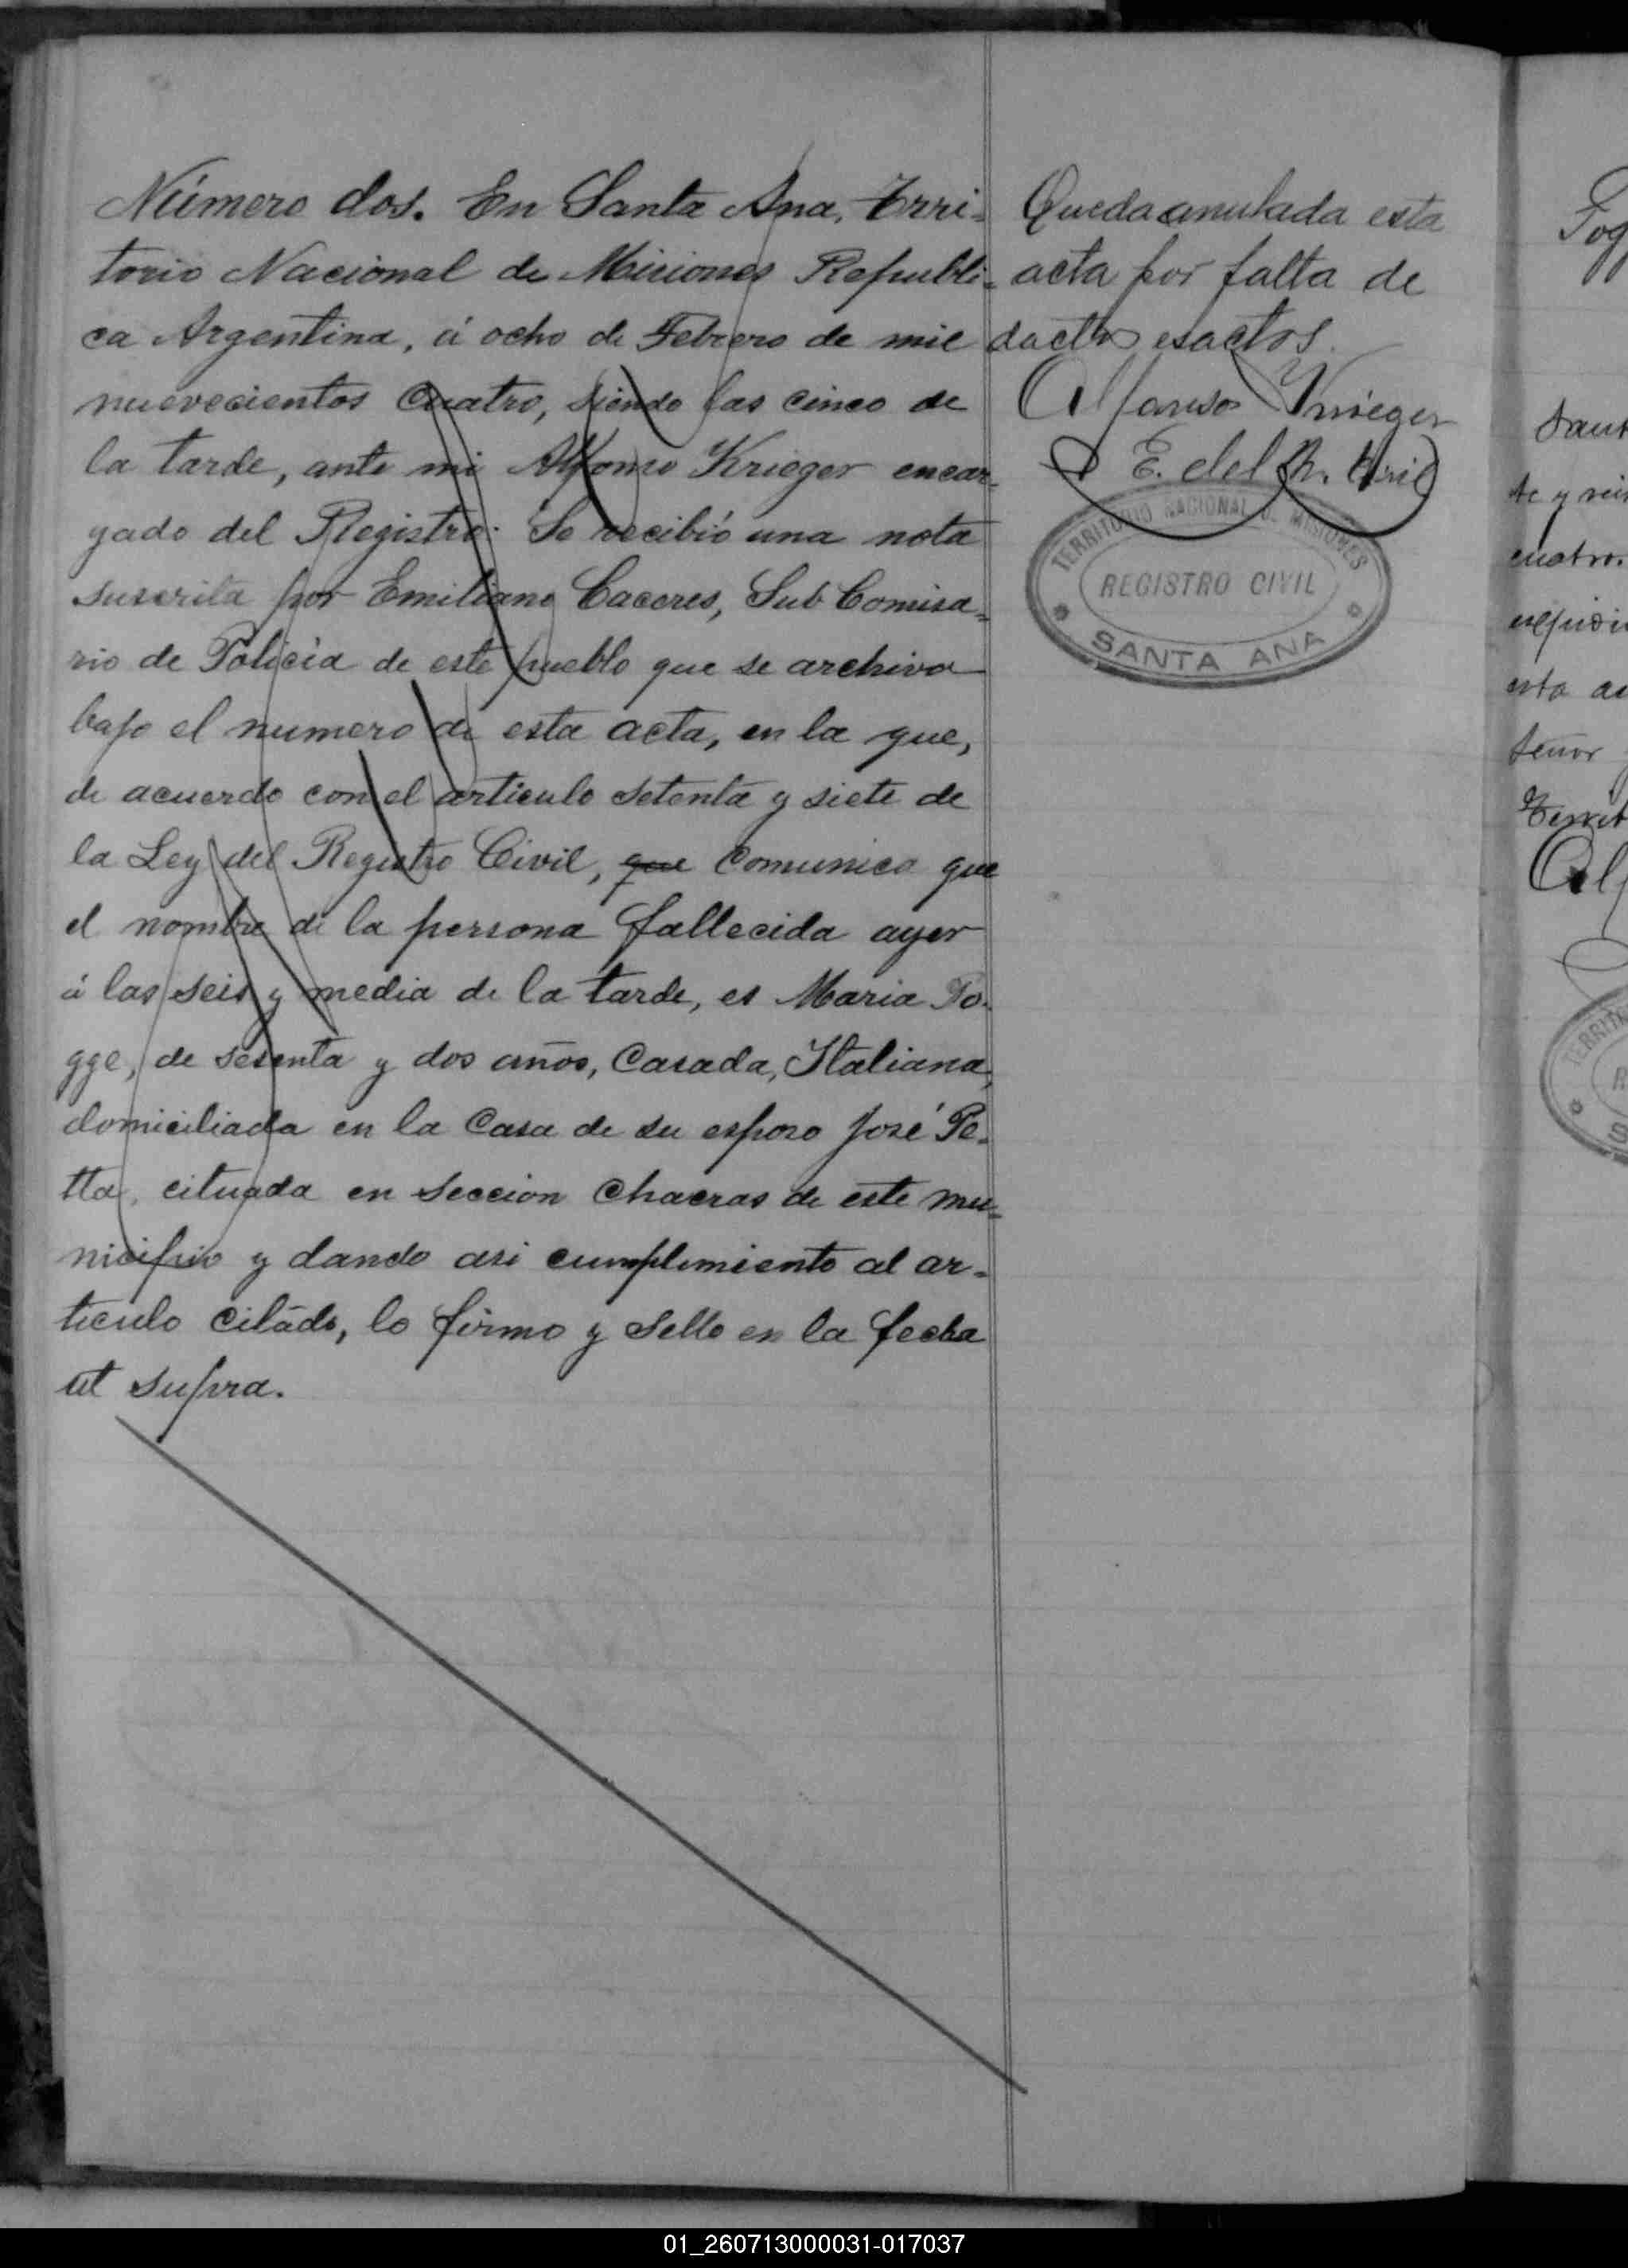 Número dos. En Santa Ana, Terri-
torio Nacional de Misiones Republi-
ca Argentina, á ocho de Febrero de mil
nuevecientos cuatro, siendo las cinco de
la tarde, ante mi Alfonso Krieger encar-
gado del Registro: Se recibió una nota
suscrita por Emiliano Caceres, Sub Comisa-
rio de Policia de este pueblo que se archiva
bajo el numero de esta acta, en la que,
de acuerdo con el articulo setenta y siete de
la Ley del Registro Civil, que comunica que
el nombre de la persona fallecida ayer
á las seis y media de la tarde, es Maria Fo-
gge, de sesenta y dos años, Casada, Italiana,
domiciliada en la Casa de su esposo José Pe-
tta, cituada en Seccion Chacras de este mu-
nicipio y dando asi cumplimiento al ar-
ticulo citado, lo firmo y sello en la fecha
ut supra.
Queda anulada esta
acta por falta de
dactos esactos.
Alfonso Krieger
E. del R. Civil
TERRITORIO NACIONAL DE MISIONES
REGISTRO CIVIL
SANTA ANA
Fog
Sant
te y
cuatro.
esta ac
Señor
Territ
Alf
TERRIT
R
S
01_260713000031-017037